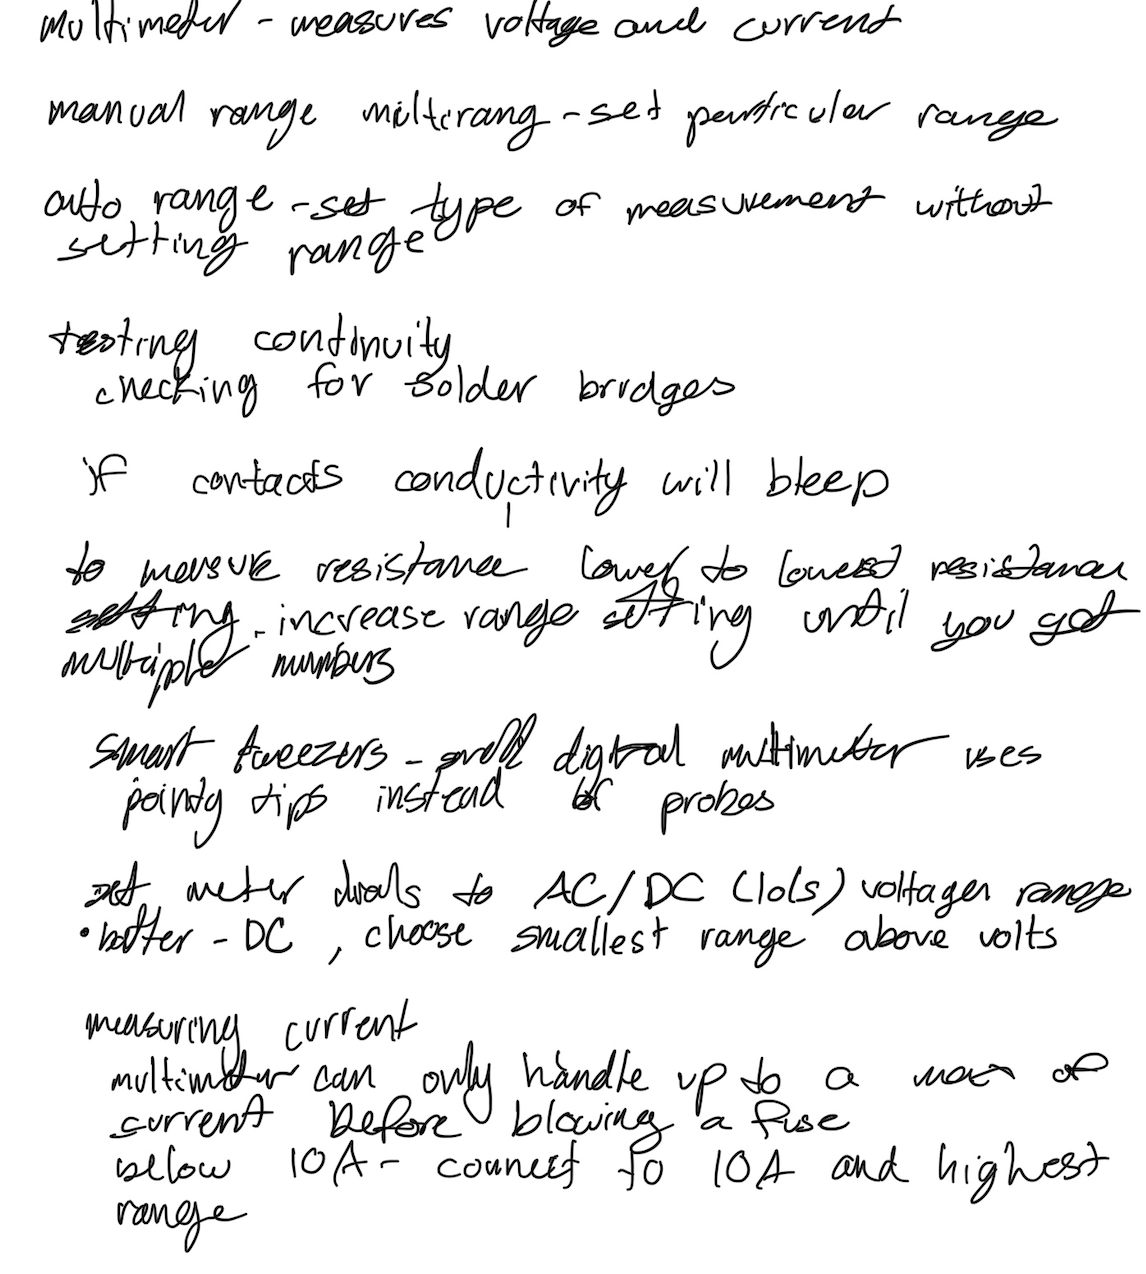 multimeter - measures voltage and current
manual range multirang - set particular range
auto range - set type of measurement without
setting range
testing continuity
checking for solder bridges
if contacts conductivity will bleep
to measure resistance lower to lowest resistance
setting - increase range setting until you get
multiple numbers
smart tweezers - small digital multimeter uses
pointy tips instead of probes
set meter dials to AC/DC voltage range
• DC, choose smallest range above volts
measuring current
multimeter can only handle up to a max of
current before blowing a fuse
below 10A - connect to 10A and highest
range